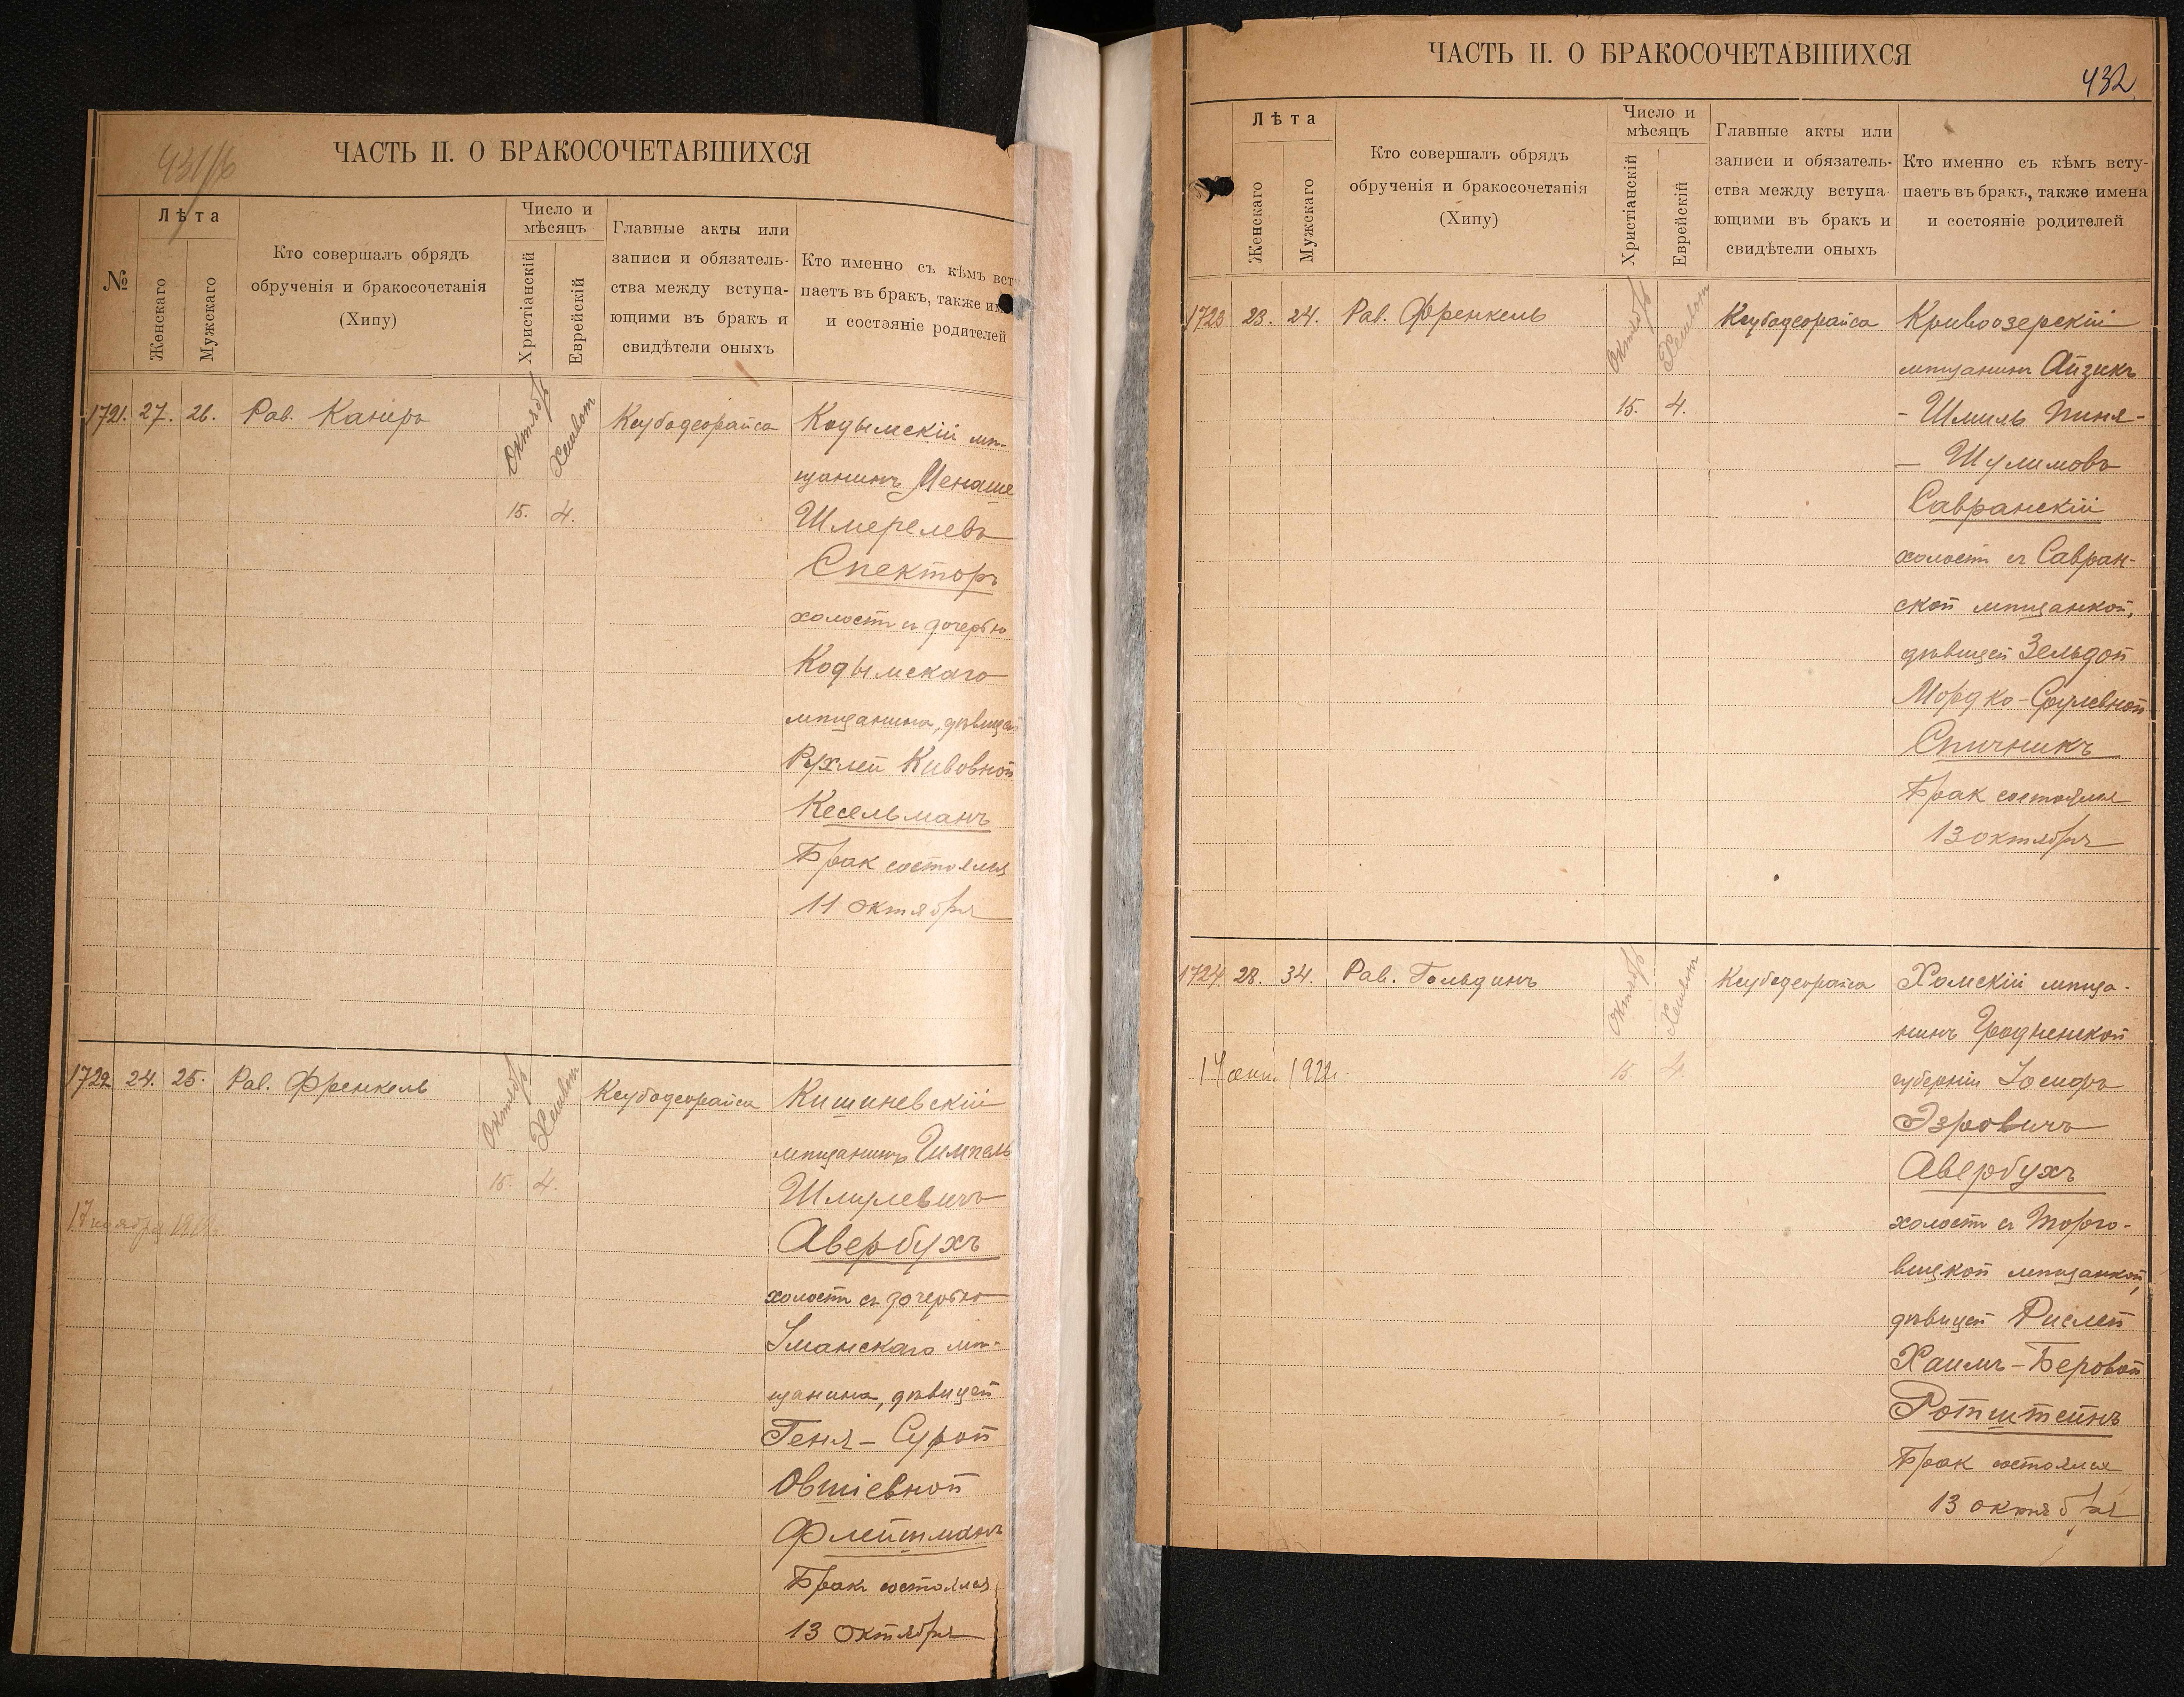 431/б
ЧАСТЬ II. О БРАКОСОЧЕТАВШИХСЯ
№
Лѣта
Женскаго
Мужскаго
Кто совершалъ обрядъ
обрученія и бракосочетанія
(Хипу)
Число и
мѣсяцъ
Христіанскій
Еврейскій
Главные акты или
записи и обязатель-
ства между вступа-
ющими въ бракъ и
свидѣтели оныхъ
Кто именно съ кѣмъ вст
паетъ въ бракъ, также им
и состояніе родителей
1721. 27. 26. Рав. Канеръ
Октябрь
Хешвон
15. 4.
Ксубадеорайса
Кодымскій мѣ-
щанинъ Менаше
Шмерелевъ
Спекторъ
холост съ дочерью
Кодымскаго
мѣщанина, дѣвицей
Рухлей Кивовной
Кесельманъ
Брак состоялся
11 октября
1722 24. 25. Рав. Френкель
Октябрь
Хешвон
15. 4.
Ксубадеорайса
17 ноября
Кишиневскій
мѣщанинъ Гимпель
Шмулевичъ
Авербухъ
холост съ дочерью
Уманскаго мѣ-
щанина, дѣвицей
Геня-Сурой
Овшіевной
Флейшманъ
Бракъ состоялся
13 октября
ЧАСТЬ II. О БРАКОСОЧЕТАВШИХСЯ
432
Лѣта
Женскаго
Мужскаго
Кто совершалъ обрядъ
обрученія и бракосочетанія
(Хипу)
Число и
мѣсяцъ
Христіанскій
Еврейскій
Главные акты или
записи и обязатель-
ства между вступа-
ющими въ бракъ и
свидѣтели оныхъ
Кто именно съ кѣмъ всту-
паетъ въ бракъ, также имена
и состояніе родителей
1723 23. 24. Рав. Френкель
Октябрь
Хешвон
15. 4.
Ксубадеорайса
Кривоозерскій
мѣщанинъ Айзикъ
- Шмиль Пиня-
- Шулимовъ
Савранскій
холост съ Савран-
ской мѣщанкой,
дѣвицей Зельдой
Мордко-Срулевной
Спичникъ
Брак состоялся
13 октября
1724 28. 34. Рав. Гольдинъ
Октябрь
Хешвон
15. 4.
Ксубадеорайса
Хомскій мѣща-
нинъ Гродненской
губерніи Іосифъ
Эзровичъ
Авербухъ
холост съ Торго-
вицкой мѣщанкой,
дѣвицей Рислей
Хаимъ-Беровой
Ротштейнъ
Брак состоялся
13 октября